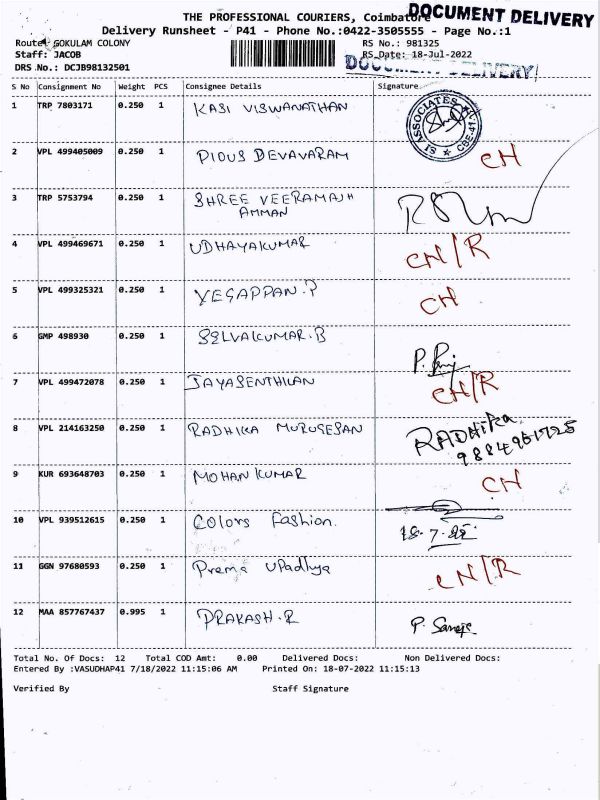 THE PROFESSIONAL COURIERS, Coimbatore
DOCUMENT DELIVERY
Delivery Runsheet - P41 - Phone No.:0422-3505555 - Page No.:1
Route: GOKULAM COLONY
RS No.: 981325
Staff: JACOB
RS Date: 18-Jul-2022
DRS No.: DCJB98132501
DOCUMENT DELIVERY
S No Consignment No Weight PCS Consignee Details Signature
1 TRP 7803171 0.250 1 KASI VISWANATHAN
SI ASSOCIATES CBE-41
2 VPL 499405009 0.250 1 PIOUS DEVAVARAM CH
3 TRP 5753794 0.250 1 SHREE VEERAMAJH
AMMAN
4 VPL 499469671 0.250 1 UDHAYAKUMAR CN/R
5 VPL 499325321 0.250 1 YEGAPPAN.P CH
6 GMP 498930 0.250 1 SELVAKUMAR.B
7 VPL 499472078 0.250 1 JAYASENTHILAN CH/R
8 VPL 214163250 0.250 1 RADHIKA MURUGESAN RADHIKA
9884961725
9 KUR 693648703 0.250 1 MOHAN KUMAR CH
10 VPL 939512615 0.250 1 Colors Fashion. 18.7.22
11 GGN 97680593 0.250 1 Prema UPadhya CN/R
12 MAA 857767437 0.995 1 PRAKASH.R P. Saroja
Total No. Of Docs: 12 Total COD Amt: 0.00 Delivered Docs: Non Delivered Docs:
Entered By :VASUDHAP41 7/18/2022 11:15:06 AM Printed On: 18-07-2022 11:15:13
Verified By Staff Signature